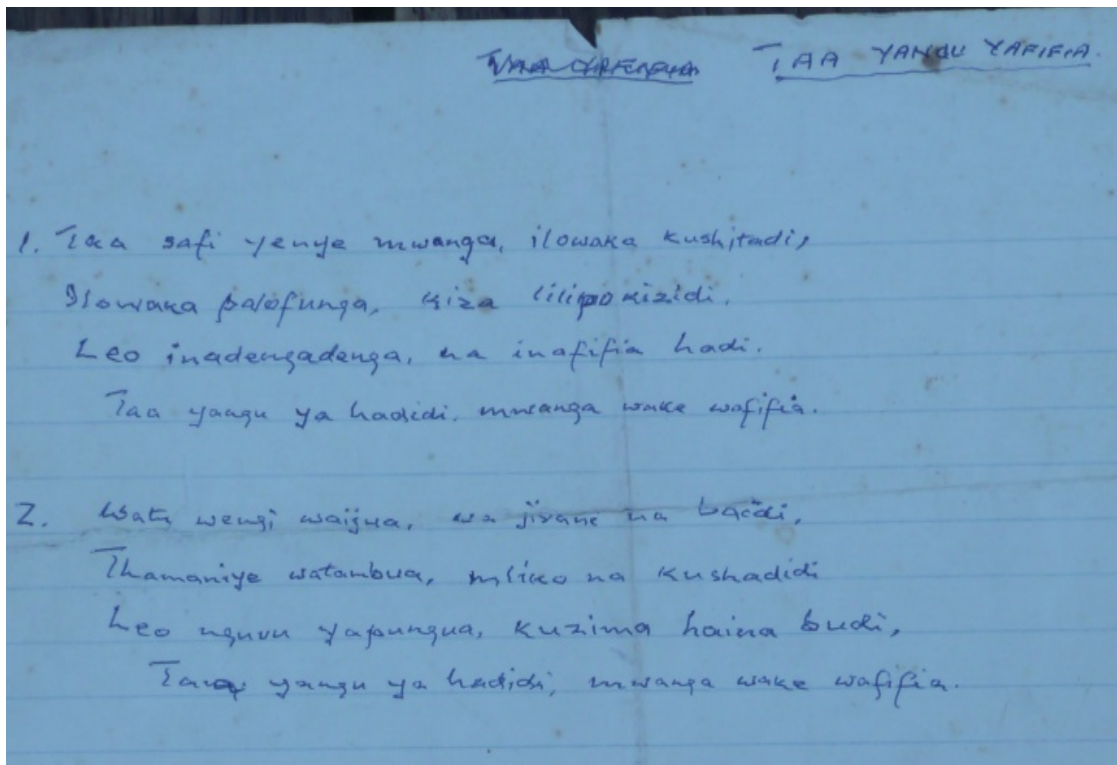 TAA YANGU YAFIFIA.
1. Taa safi yenye mwanga, ilowaka kushitadi,
Ilowaka palofunga, kiza lilipokizidi.
Leo inadengadenga, na inafifia hadi.
Taa yangu ya hadidi, mwanga wake wafifia.
2. Watu wengi waijua, wa jirani na baidi,
Thamaniye watambua, mliko na kushadidi
Leo nguvu yapungua, kuzima haina budi,
Taa yangu ya hadidi, mwanga wake wafifia.